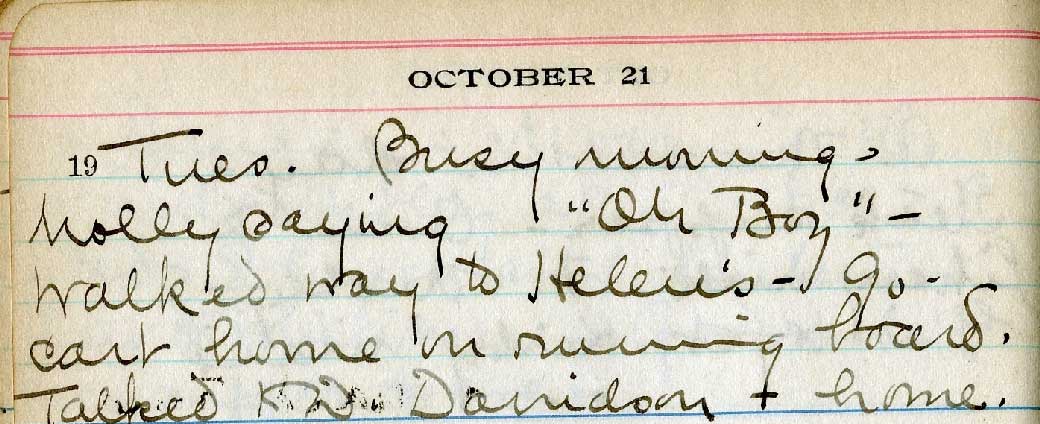 OCTOBER 21
19 Tues. Busy morning -
Molly saying "Oh Boy" -
Walked way to Helen's - Go-
cart home on running board.
Talked Davidson + home.